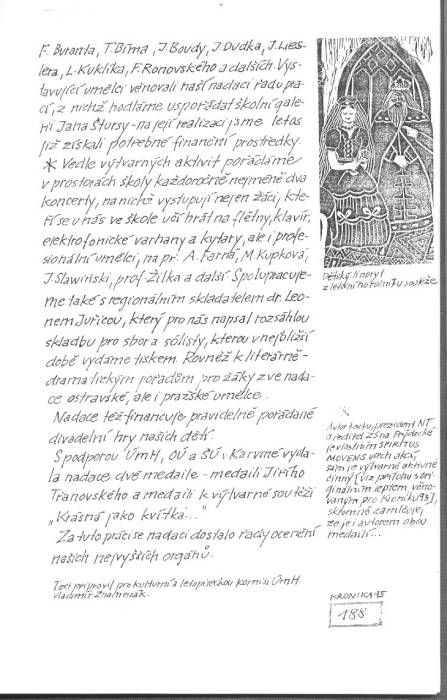 F. Buranta, T. Bíma, J. Boudy, J. Dudka, J. Lies-
lera, L. Kuklíka, F. Ronovského a dalších. Vys-
tavující umělci věnovali naší nadaci řadu pra-
cí, z nichž hodláme uspořádat školní gale-
rii Jana Štursy - na její realizaci jsme letos
již získali potřebné finanční prostředky.
* Vedle výtvarných aktivit pořádáme
v prostorách školy každoročně nejméně dva
koncerty, na nichž vystupují nejen žáci, kte-
ří se u nás ve škole učí hrát na flétny, klavír,
elektrofonické varhany a kytary, ale i profe-
sionální umělci, na př. A. Farna, M. Kupková,
J. Slawiński, prof. Žilka a další. Spolupracuje-
me také s regionálním skladatelem dr. Leo-
nem Juřicou, který pro nás napsal rozsáhlou
skladbu pro sbor a sólisty, kterou v nejbližší
době vydáme tiskem. Rovněž k literárně-
dramatickým pořadům pro žáky zve nada-
ce ostravské, ale i pražské umělce.
Nadace též financuje pravidelně pořádané
divadelní hry našich dětí.
S podporou ÚmH, OÚ a ŠÚ v Karviné vyda-
la nadace dvě medaile - medaili Jiřího
Tranovského a medaili k výtvarné soutěži
„Krásná jako kvítka..."
Za tuto práci se nadaci dostalo řady ocenění
našich nejvyšších orgánů.
Text připravil pro kulturní a letopiseckou komisi ÚmH
Vladimír Znamenák.
Dětský linoryt
z letošního ročníku soutěže
Autor textu, prezident NT
a ředitel ZŠ na Frýdecké
je vlastním SPIRITUS
MOVENS všech akcí,
sám je výtvarně aktivně
činný [viz přílohu s ori-
ginálním leptem věno-
vaným pro Kroniku 95],
skromně zamlčuje,
že je i autorem obou
medailí...
KRONIKA 95
188